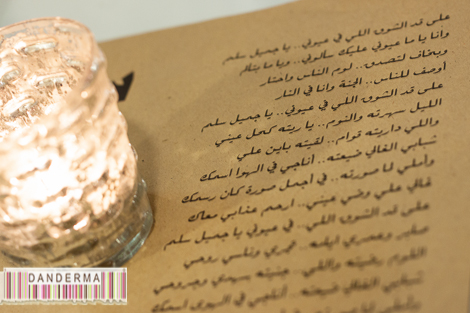 على قد الشوق اللي في عيوني.. يا جميل سلم
وانا ياما عيوني عليك سألوني.. وياما بتألم
وبخاف لتصدق.. لوم الناس واحتار
أوصف للناس.. الجنة وانا في النار
على قد الشوق اللي في عيوني.. يا جميل سلم
الليل سهرته والنوم.. يا ريته كحل عيني
واللي داريته قوام.. لقيته باين علي
شبابي الغالي ضيعته.. أناجي في الهوا اسمك
وأملي لما صورته.. في اجمل صورة كان رسمك
غالي علي وضي عيني.. ارحم عذابي معاك
على قد الشوق اللي.. في عيوني يا جميل سلم
وعمري وناسي روحي
شبابي الغالي ضيعته.. أناجي في الهوى اسمك
DANDERMA